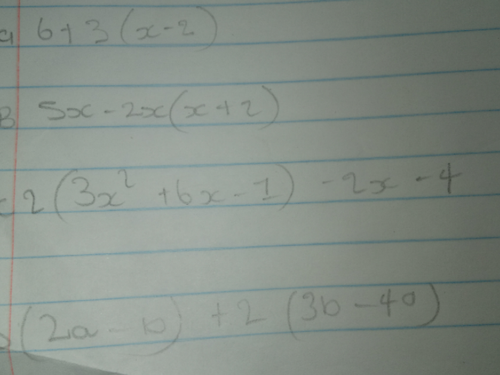 a 6+3(x-2)
B 5x-2x(x+2)
c 2(3x² +6x-1) -2x -4
D (2a-b) +2 (3b-4a)